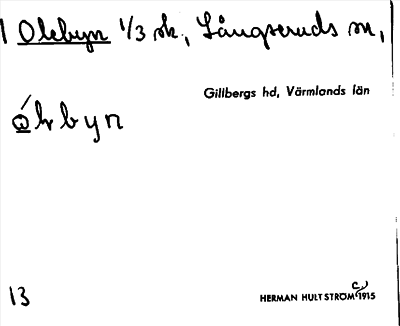 1 Olebyn 1/3 sk., Långseruds sn,
Gillbergs hd, Värmlands län
ólrbyn
13
HERMAN HULTSTRÖM c) 1915